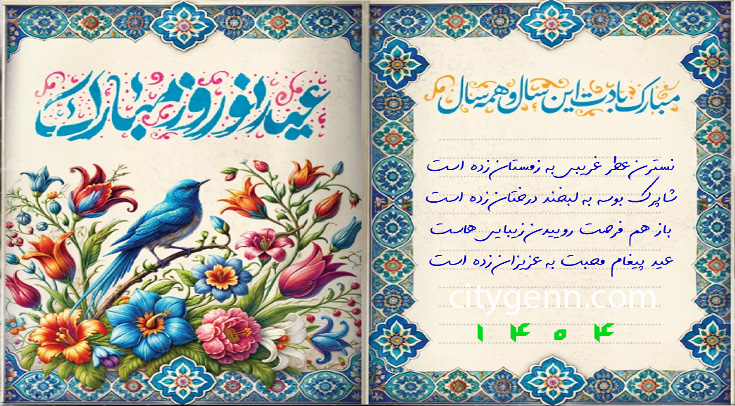 عید نوروز مبارک
مبارک بادت این سال و همه سال
نسترن عطر غریبی به زمستان زده است
شاپرک بوسه به لبخند درختان زده است
باز هم فرصت روییدن زیبایی هاست
عید پیغام محبت به عزیزان زده است
citygenn.com
۱۴۰۴